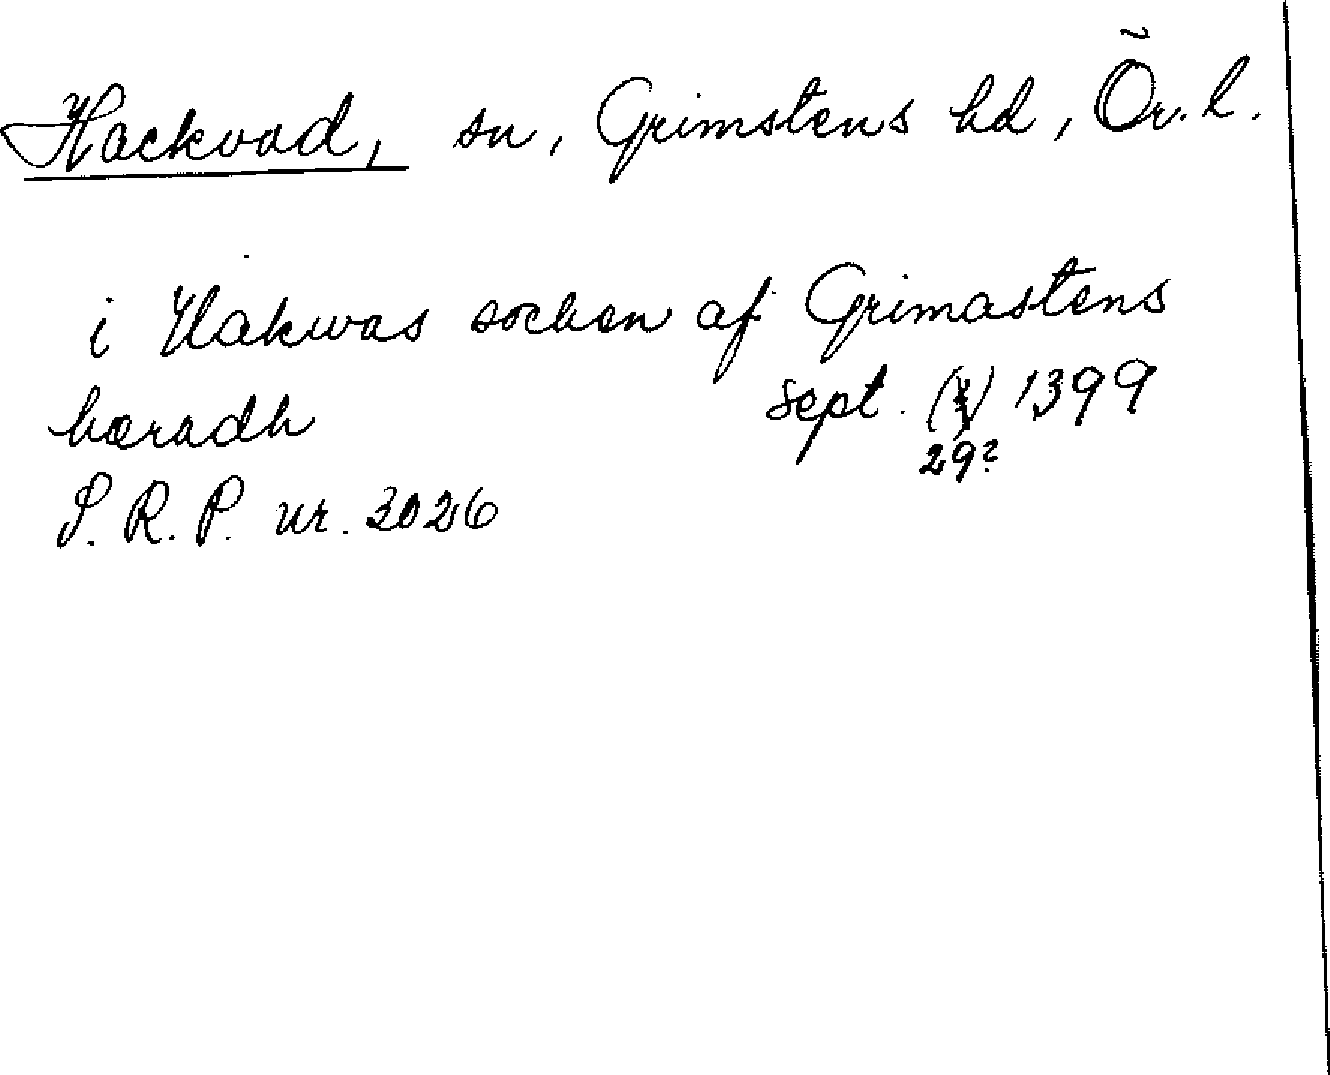 Hackvad, sn, Grimstens hd, Ör. l.
i Hakwas sochen af Grimastens
hæradh sept. () 1399
29?
S. R. P. nr. 3026